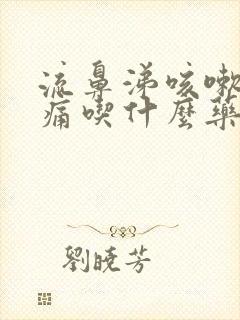 流鼻涕咳嗽
痛喫什麼藥
劉曉芳